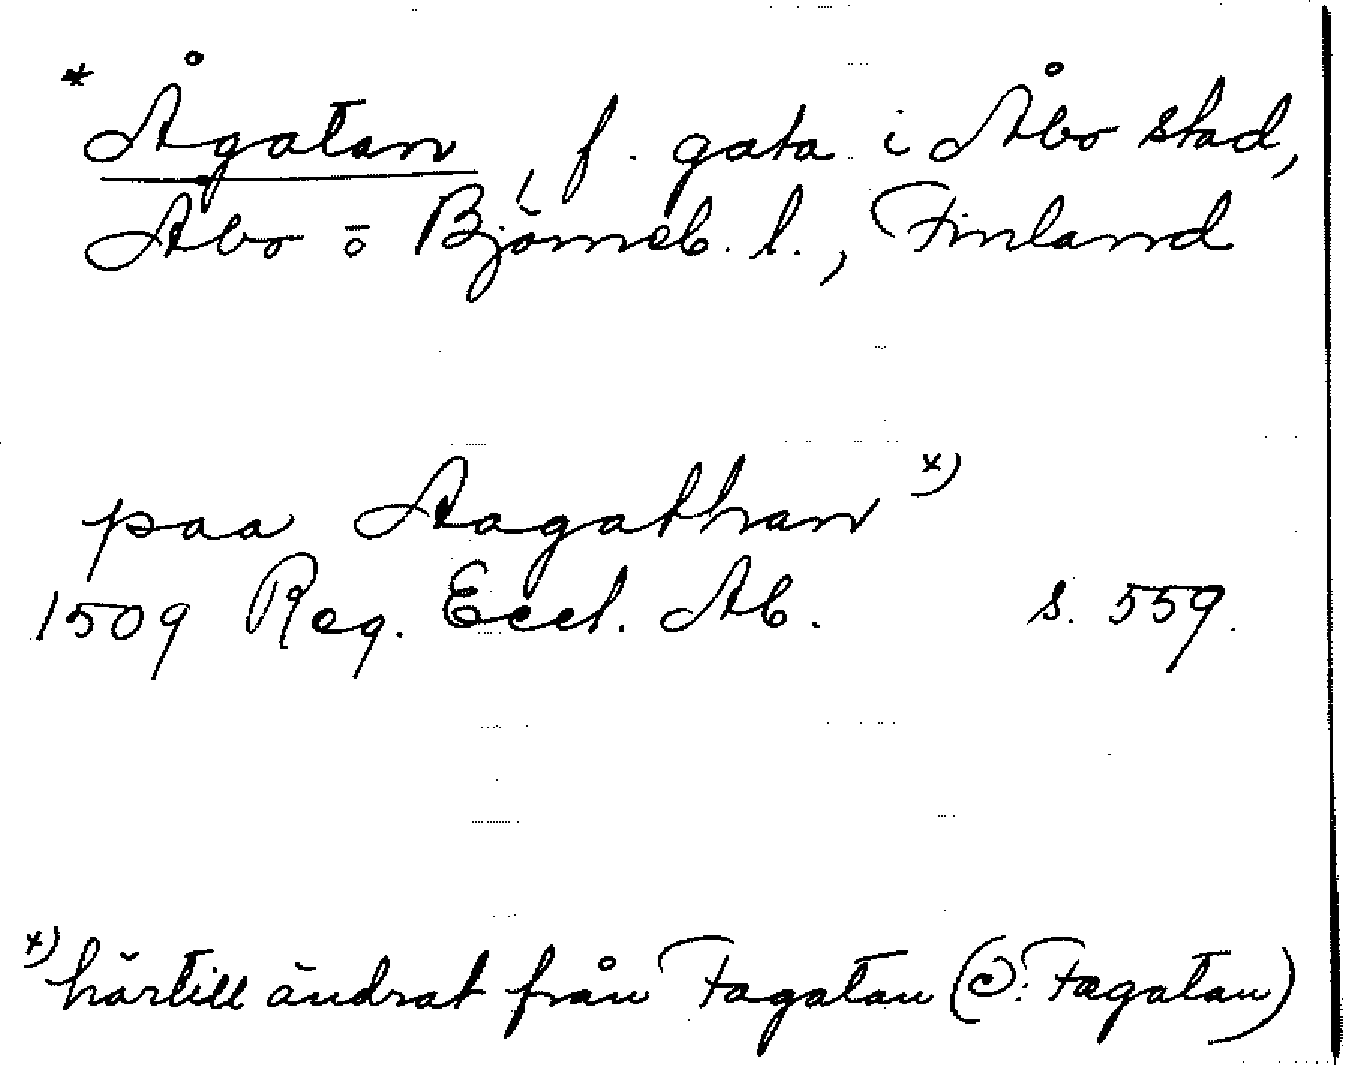 * Ågatan, f. gata i Åbo stad,
Åbo o Björneb. l., Finland
paa Aagathan x)
1509 Reg. Eccl. Ab. s. 559.
x) härtill ändrat från Fagatan (ɔ: Fægatan)